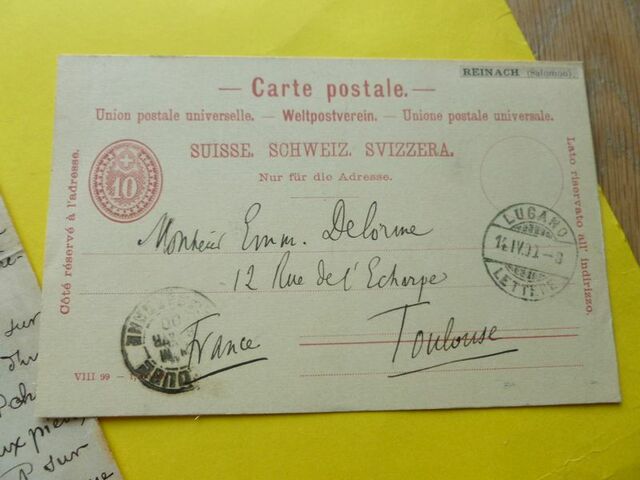 REINACH (Salomon).
— Carte postale. —
Union postale universelle. — Weltpostverein. — Unione postale universale.
SUISSE. SCHWEIZ. SVIZZERA.
Nur für die Adresse.
Côté réservé à l'adresse.
Lato riservato all' indirizzo.
10
LUGANO
LETTERE
Monsieur Emm. Delorme
12 Rue de l'Echarpe
Toulouse
France
VIII 99 —
sur
sur